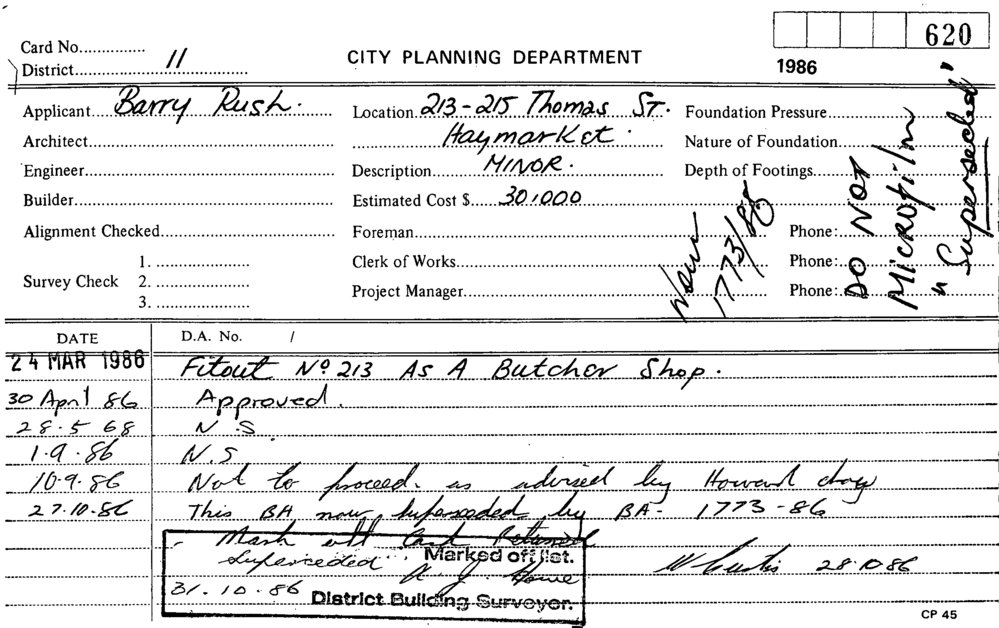 620
Card No...............
District............11............
CITY PLANNING DEPARTMENT
1986
Applicant...Barry Rush.
Location 213-215 Thomas St.
Foundation Pressure
Architect
Haymarket.
Nature of Foundation
Engineer
Description MINOR.
Depth of Footings
Builder
Estimated Cost $ 30,000
Alignment Checked
Foreman
Phone:
Survey Check
1.
2.
3.
Clerk of Works
Phone:
Project Manager
Phone:
Now
1773/86
DO NOT
Microfilm
"Superseded"
DATE
D.A. No. /
24 MAR 1986 Fitout No 213 As A Butcher Shop.
30 April 86 Approved.
28.5 68 N.S.
1.9.86 N.S.
10.9.86 Not to proceed. as advised by Howard
27.10.86 This BA now superceded by BA- 1773-86
- Mark off Card Returned
Superceded Marked off list.
W Curtis 28.10.86
31.10.86 District Building Surveyor.
CP 45